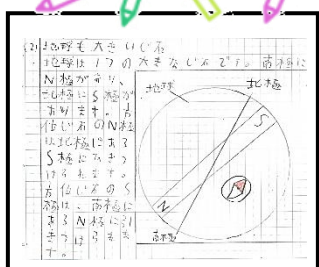 (2)地球も大きいじ石
地球は1つの大きなじ石です。南極に
N極があり、
北極にS極が
あります。方
位じ石のN極
は北極にある
S極に引きつ
けられます。
方位じ石のS
極は、南極に
あるN極に引
きつけられま
す。
地球
北極
S
N
南極